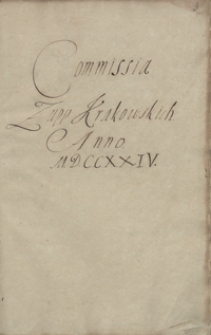 Commissia
Zupp Krakowskich
Anno
MDCCXXIV.